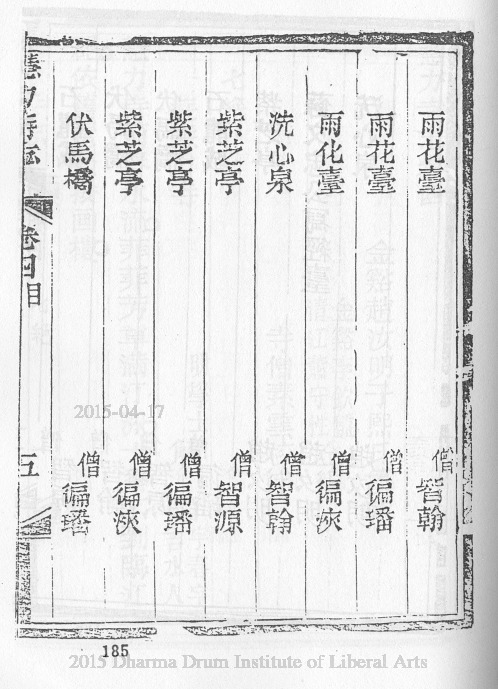 雨花臺 僧智翰
雨花臺 僧徧璠
雨化臺 僧徧浹
洗心泉 僧智翰
紫芝亭 僧智源
紫芝亭 僧徧璠
紫芝亭 僧徧浹
伏馬橋 僧徧璠
慧力寺志 卷四目 五
2015-04-17
185
2015 Dharma Drum Institute of Liberal Arts